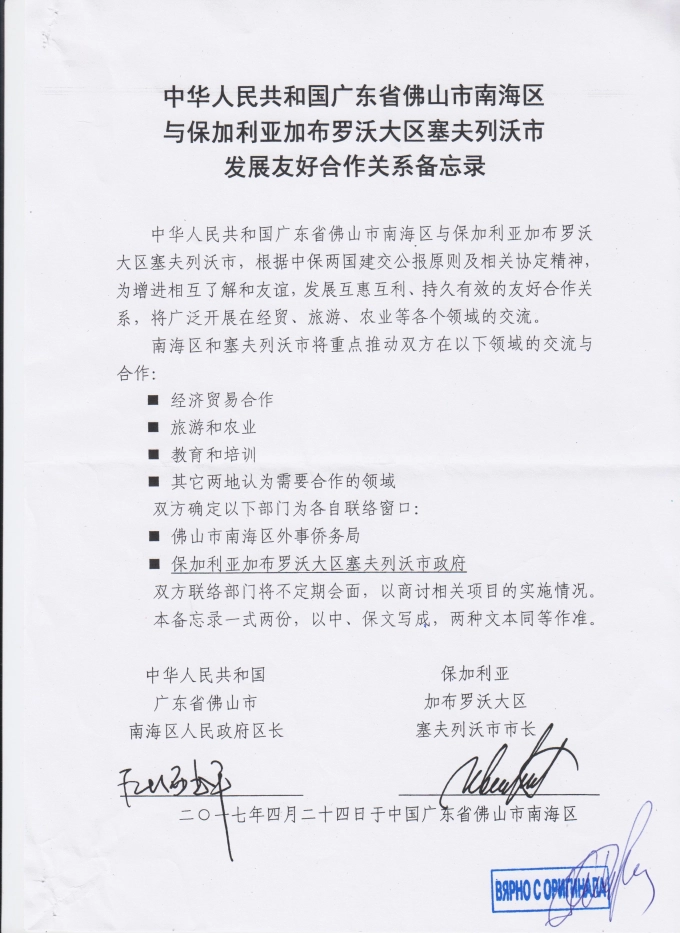 中华人民共和国广东省佛山市南海区
与保加利亚加布罗沃大区塞夫列沃市
发展友好合作关系备忘录
中华人民共和国广东省佛山市南海区与保加利亚加布罗沃
大区塞夫列沃市，根据中保两国建交公报原则及相关协定精神，
为增进相互了解和友谊，发展互惠互利、持久有效的友好合作关
系，将广泛开展在经贸、旅游、农业等各个领域的交流。
南海区和塞夫列沃市将重点推动双方在以下领域的交流与
合作：
■ 经济贸易合作
■ 旅游和农业
■ 教育和培训
■ 其它两地认为需要合作的领域
双方确定以下部门为各自联络窗口：
■ 佛山市南海区外事侨务局
■ 保加利亚加布罗沃大区塞夫列沃市政府
双方联络部门将不定期会面，以商讨相关项目的实施情况。
本备忘录一式两份，以中、保文写成，两种文本同等作准。
中华人民共和国
广东省佛山市
南海区人民政府区长
保加利亚
加布罗沃大区
塞夫列沃市市长
二〇一七年四月二十四日于中国广东省佛山市南海区
ВЯРНО С ОРИГИНАЛА